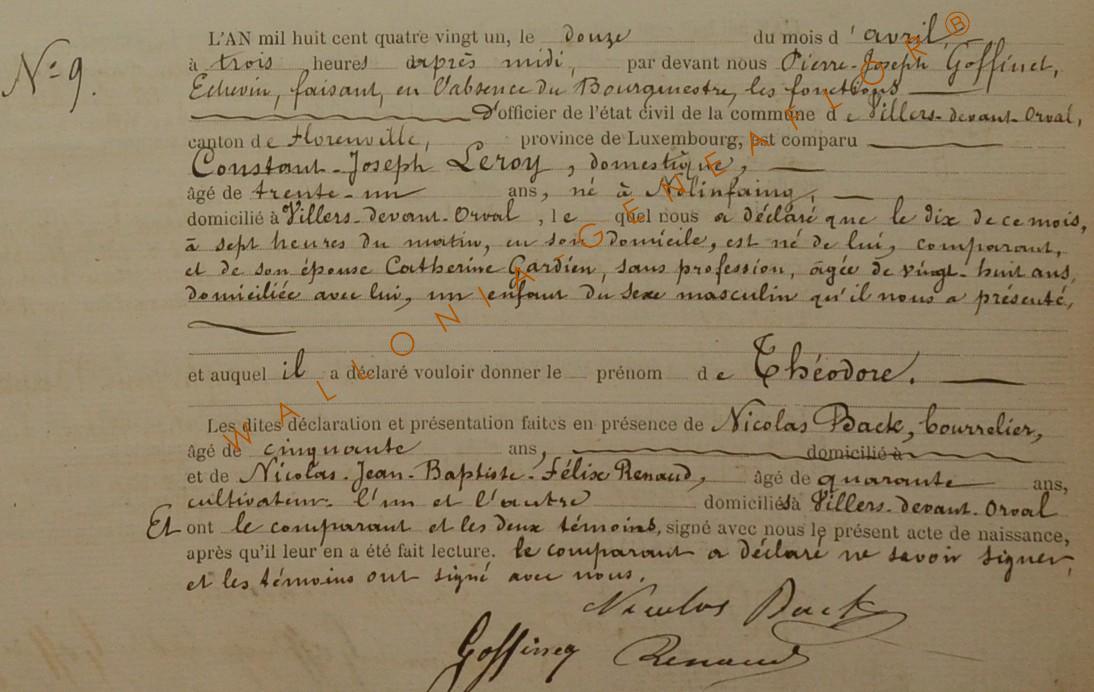 Nº 9.
L'AN mil huit cent quatre vingt un, le douze du mois d'avril,
à trois heures après midi, par devant nous Pierre-Joseph Goffinet,
Echevin, faisant, en l'absence du Bourgmestre, les fonctions
D'officier de l'état civil de la commune de Villers-devant-Orval,
canton de Florenville, province de Luxembourg, est comparu
Constant-Joseph Leroy, domestique,
âgé de trente-un ans, né à
domicilié à Villers-devant-Orval, lequel nous a déclaré que le dix de ce mois,
à sept heures du matin, en son domicile, est né de lui, comparant,
et de son épouse Catherine Gardien, sans profession, âgée de vingt-huit ans,
domiciliée avec lui, un enfant du sexe masculin qu'il nous a présenté,
et auquel il a déclaré vouloir donner le prénom de Théodore.
Les dites déclaration et présentation faites en présence de Nicolas Back, bourrelier,
âgé de cinquante ans, domicilié à
et de Nicolas-Jean-Baptiste-Félix Renaud, âgé de quarante ans,
cultivateur. l'un et l'autre domiciliés à Villers-devant-Orval
Et ont le comparant et les deux témoins, signé avec nous le présent acte de naissance,
après qu'il leur en a été fait lecture. le comparant a déclaré ne savoir signer,
et les témoins ont signé avec nous.
Nicolas Back
Goffinet Renaud
WALLONIA-GENEAFLOR®